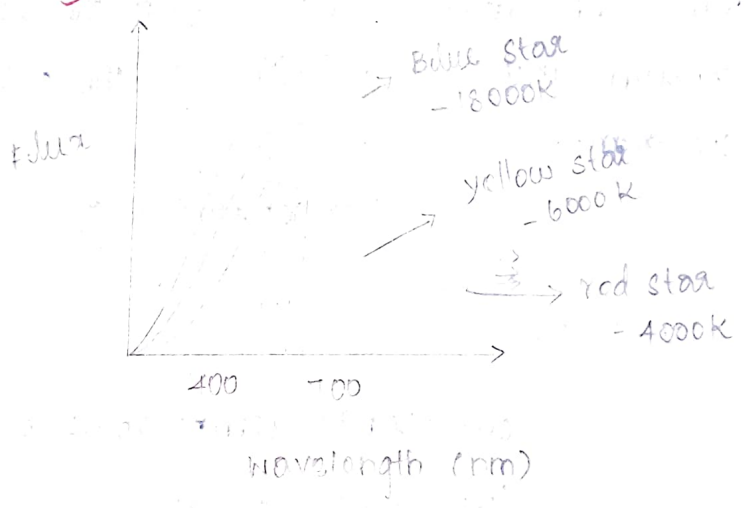 Blue star
- 8000K
Flux
yellow star
- 6000 K
red star
- 4000K
400 700
wavelength (nm)